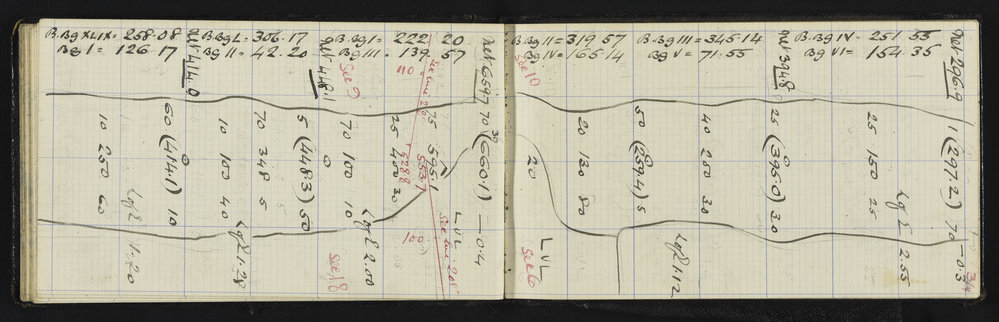 B.Bg XLIX = 258.08
Bg I = 126.17
Net 414.0
B.Bg L = 306.17
Bg II = 42.20
Net 448.1
B.Bg I = 222 20
Bg III = 139.57
Net 659.7
110
See 9
60 (414.1) 10
10 250 60
Lgl 1.20
10 100 40
Lgl 1.28
70 348 5
5 (448.3) 50
0
70 100 10
See 18
Lgl 2.00
25 400 30
75 595.1
70 30 (660.1) — 0.4
LVL
100
B.Bg II = 319.57
Bg IV = 165.14
See 10
B.Bg III = 345.14
Bg V = 71.55
Net 394.8
B.Bg IV = 251 55
Bg VI = 154.35
Net 296.9
20
LVL
See 6
20 130 80
50 (259.4) 5
40 200 30
Lgl 1.12
25 (395.0) 30
25 150 25
Lgl 2.55
1 (297.2) 70 — 0.3